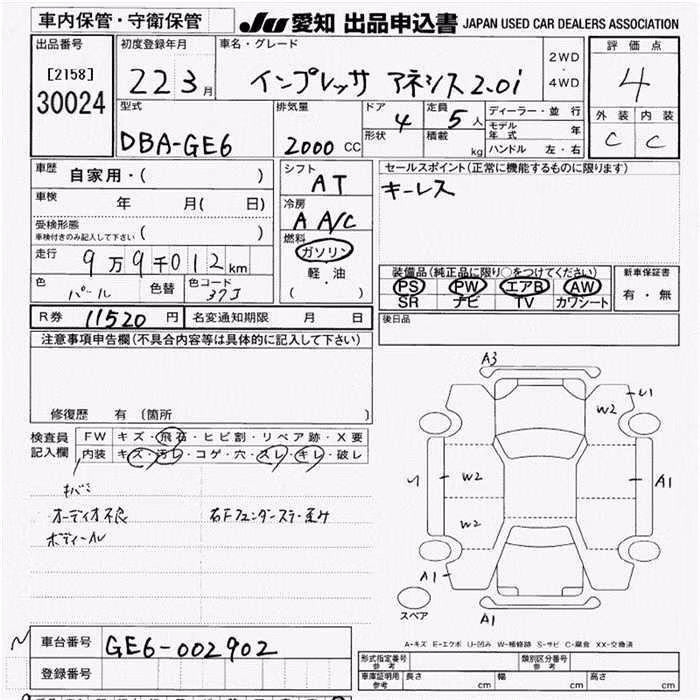 車内保管・守衛保管 JU 愛知 出品申込書 JAPAN USED CAR DEALERS ASSOCIATION
出品番号 初度登録年月 車名・グレード 2WD・4WD 評価点
[2158] 22 3月 インプレッサ アネシス 2.0i 4
30024
型式 排気量 ドア 4 定員 5人 ディーラー・並行 外装 内装
DBA-GE6 2000 CC 形状 積載 kg モデル年式 年 C C
ハンドル 左・右
車歴 自家用・( ) シフト AT セールスポイント(正常に機能するものに限ります)
車検 年 月( 日) 冷房 A A/C キーレス
受検形態 車検付きのみ記入して下さい ( ) 燃料 ガソリン
走行 9万9千012km 軽・油 装備品(純正品に限り○をつけてください) 新車保証書
色 パール 色替 色コード 37J ( ・ ) PS PW エアB AW 有・無
SR ナビ TV カワシート
R券 11520円 名変通知期限 月 日 後日品
注意事項申告欄(不具合内容等は具体的に記入して下さい)
修復歴 有 〔箇所 〕
検査員記入欄 FW キズ・飛石・ヒビ割・リペア跡・X要
内装 キズ・汚レ・コゲ・穴・スレ・キレ・破レ
オーディオ不良
A3
W2
W2 A1
W2
A1
スペア A1
A-キズ E-エクボ U-凹み W-補修跡 S-サビ C-腐食 XX-交換済
車台番号 GE6-002902
登録番号
形式指定番号 参考 類別区分番号 参考
車庫証明用 参考 長さ cm 幅 cm 高さ cm